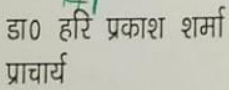 डा0 हरि प्रकाश शर्मा
प्राचार्य